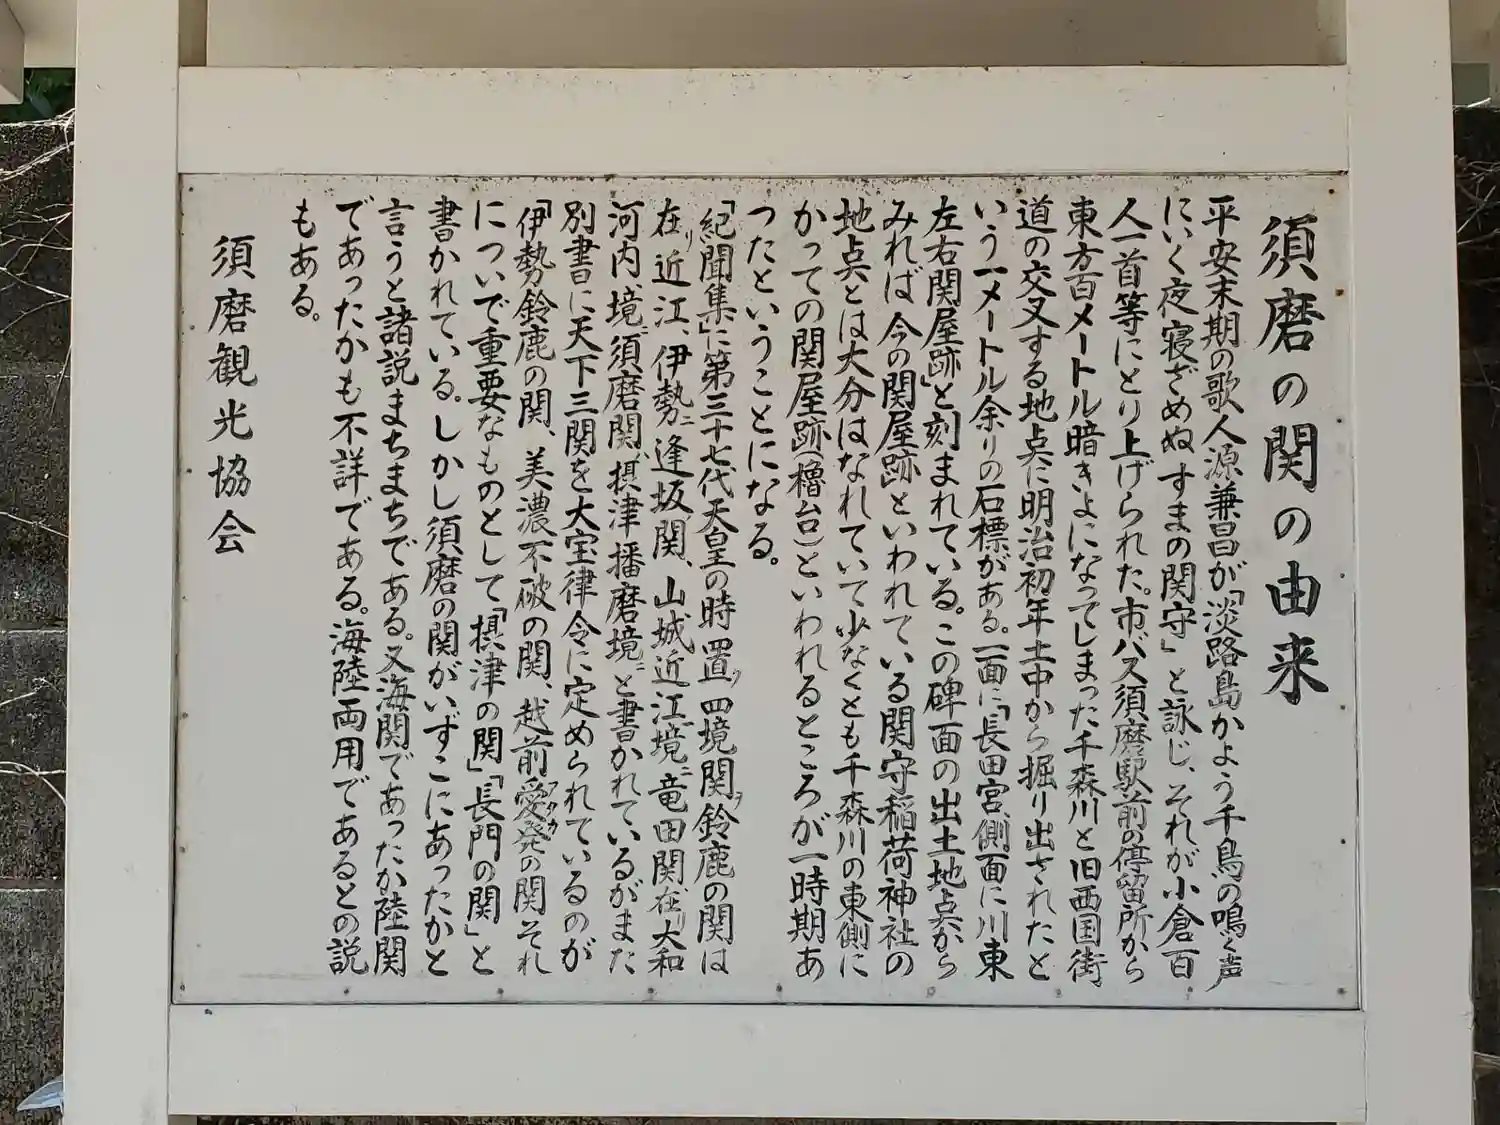 須磨の関の由来
平安末期の歌人源兼昌が「淡路島かよう千鳥の鳴く声
にいく夜寝ざめぬ すまの関守」と詠じ、それが小倉百
人一首等にとり上げられた。市バス須磨駅前の停留所から
東方百メートル暗きょになってしまった千森川と旧西国街
道の交叉する地点に明治初年土中から掘り出されたと
いう一メートル余りの石標がある。一面に「長田宮、側面に川東
左右関屋跡」と刻まれている。この碑面の出土地点から
みれば今の関屋跡といわれている関守稲荷神社の
地点とは大分はなれていて少なくとも千森川の東側に
かっての関屋跡(櫓台)といわれるところが一時期あ
つたということになる。
「紀聞集」に第三十七代天皇の時置ク四境関ヲ鈴鹿の関は
在リ近江、伊勢ニ逢坂関、山城近江境ニ竜田関在リ大和
河内境ニ須磨関摂津播磨境ニと書かれているがまた
別書に天下三関を大宝律令に定められているのが
「伊勢鈴鹿の関、美濃不破の関、越前愛発アラチカの関それ
についで重要なものとして「摂津の関」「長門の関」と
書かれている。しかし須磨の関がいずこにあったかと
言うと諸説まちまちである。又海関であったか陸関
であったかも不詳である。海陸両用であるとの説
もある。
須磨観光協会